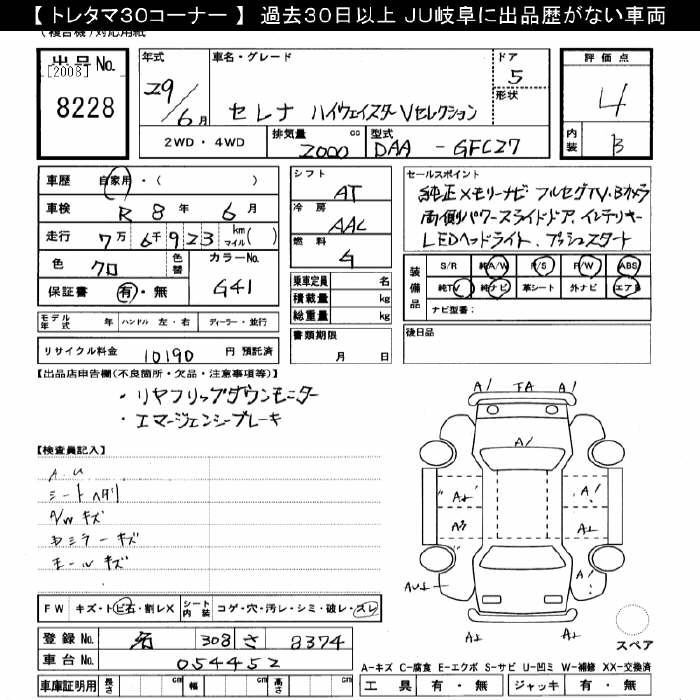 【 トレタマ30コーナー 】 過去30日以上 JU岐阜に出品歴がない車両
(複合機)対応用紙
出品No.
[2008]
8228
年式
29/6月
車名・グレード
セレナ ハイウェイスターVセレクション
ドア
5
形状
評価点
4
内装
B
2WD・4WD
排気量
2000
cc
型式
DAA - GFC27
車歴
自家用・( )
車検
R 8年 6月
走行
7万6千923 km マイル( )
色
クロ
色替
カラーNo.
G41
保証書
有・無
シフト
AT
冷房
AAC
燃料
G
乗車定員
名
積載量
kg
総重量
kg
書類期限
月 日
セールスポイント
純正メモリーナビ フルセグTV・Bカメラ
両側パワースライドドア、インテリキー
LEDヘッドライト、プッシュスタート
装備品
S/R 純A/W P/S P/W ABS
純TV 純ナビ 革シート 外ナビ エアB
ナビ型番:
後日品
モデル年式 年 ハンドル 左・右 ディーラー・並行
リサイクル料金 10190 円 預託済
【出品店申告欄(不良箇所・欠品・注意事項等)】
・リヤフリップダウンモニター
・エマージェンシーブレーキ
【検査員記入】
A.U
シートヘタリ
A/Wキズ
Rミラーキズ
モールキズ
A/ FA A/
A/
A2 A/
A3 A2
AU2 A/
A2 A2
スペア
FW キズ・トビ石・割レX
シート内装 コゲ・穴・汚レ・シミ・破レ・スレ
登録No. 名 308 さ 8374
車台No. 054452
車庫証明用 長さ cm 幅 cm 高さ cm
A-キズ C-腐食 E-エクボ S-サビ U-凹ミ W-補修 XX-交換済
工具 有・無 ジャッキ 有・無